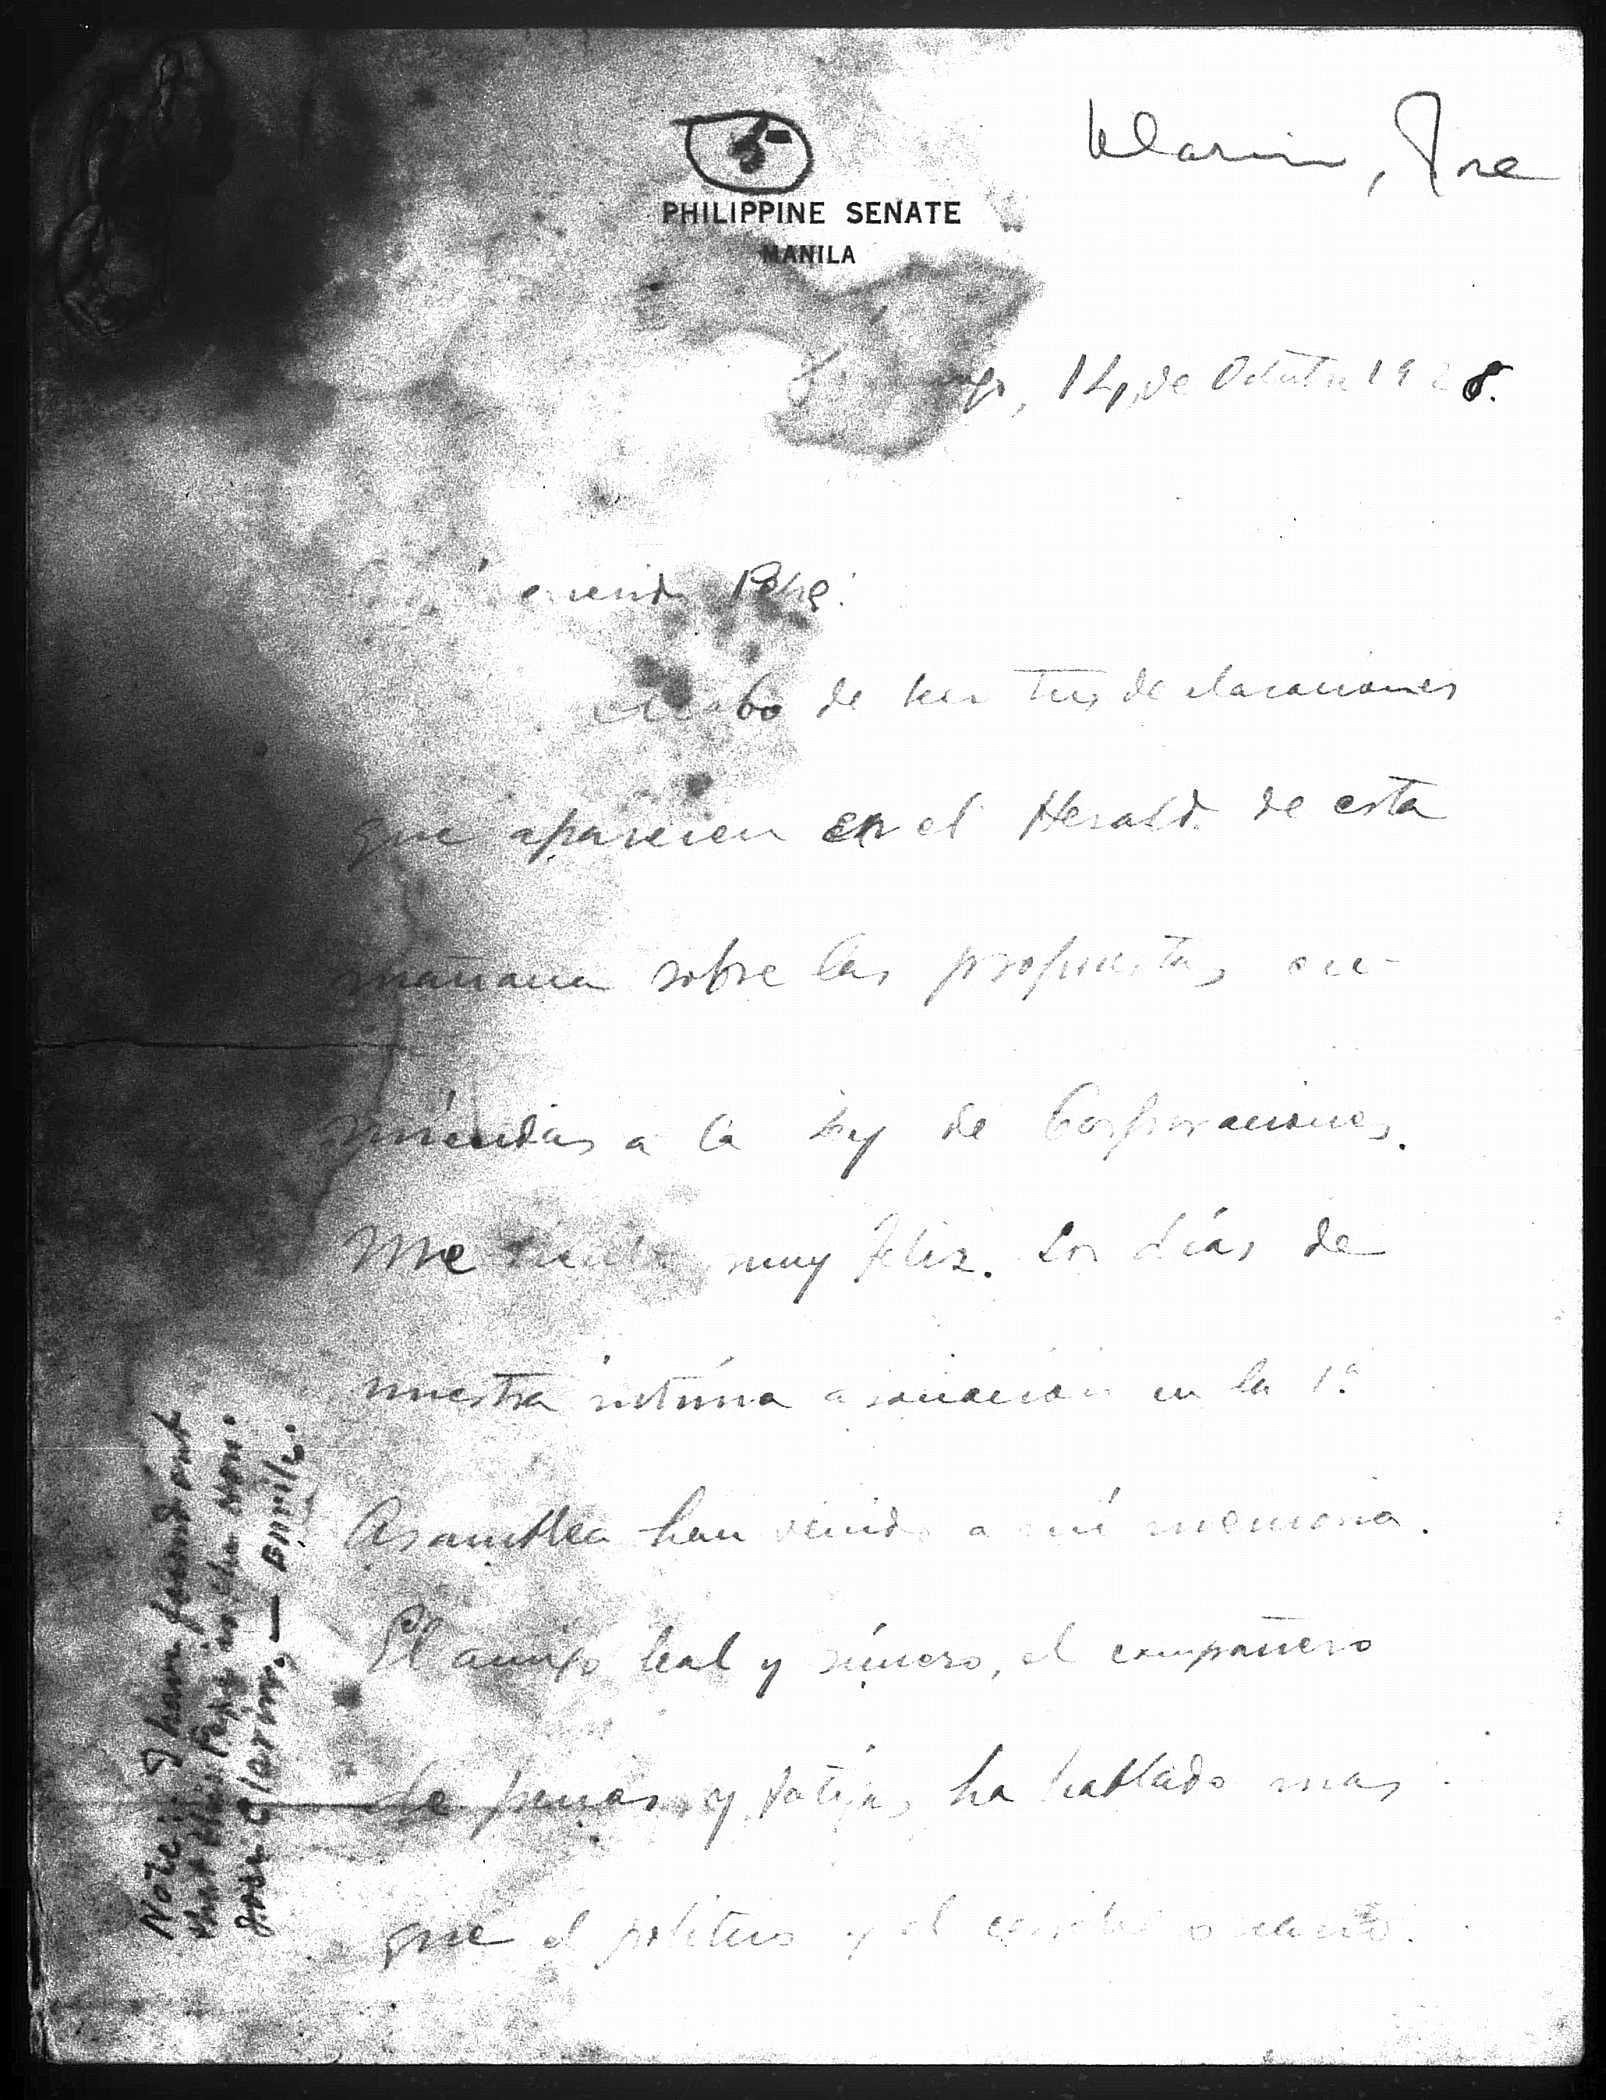 Clarin, Jose
PHILIPPINE SENATE
MANILA
14, de Octubre 1928.
querido Pepe:
Acabo de leer tus declaraciones
que aparecen en el Herald de esta
mañana sobre las propuestas en-
miendas a la Ley de Corporaciones.
Me siento muy feliz. Los días de
nuestra íntima asociación en la 1ª
Asamblea han venido a mi memoria.
El amigo leal y sincero, el compañero
de penas y fatigas ha hablado mas
que el político y el
Note: I have found out
that this Pepe is the Hon.
Jose Clarin. —